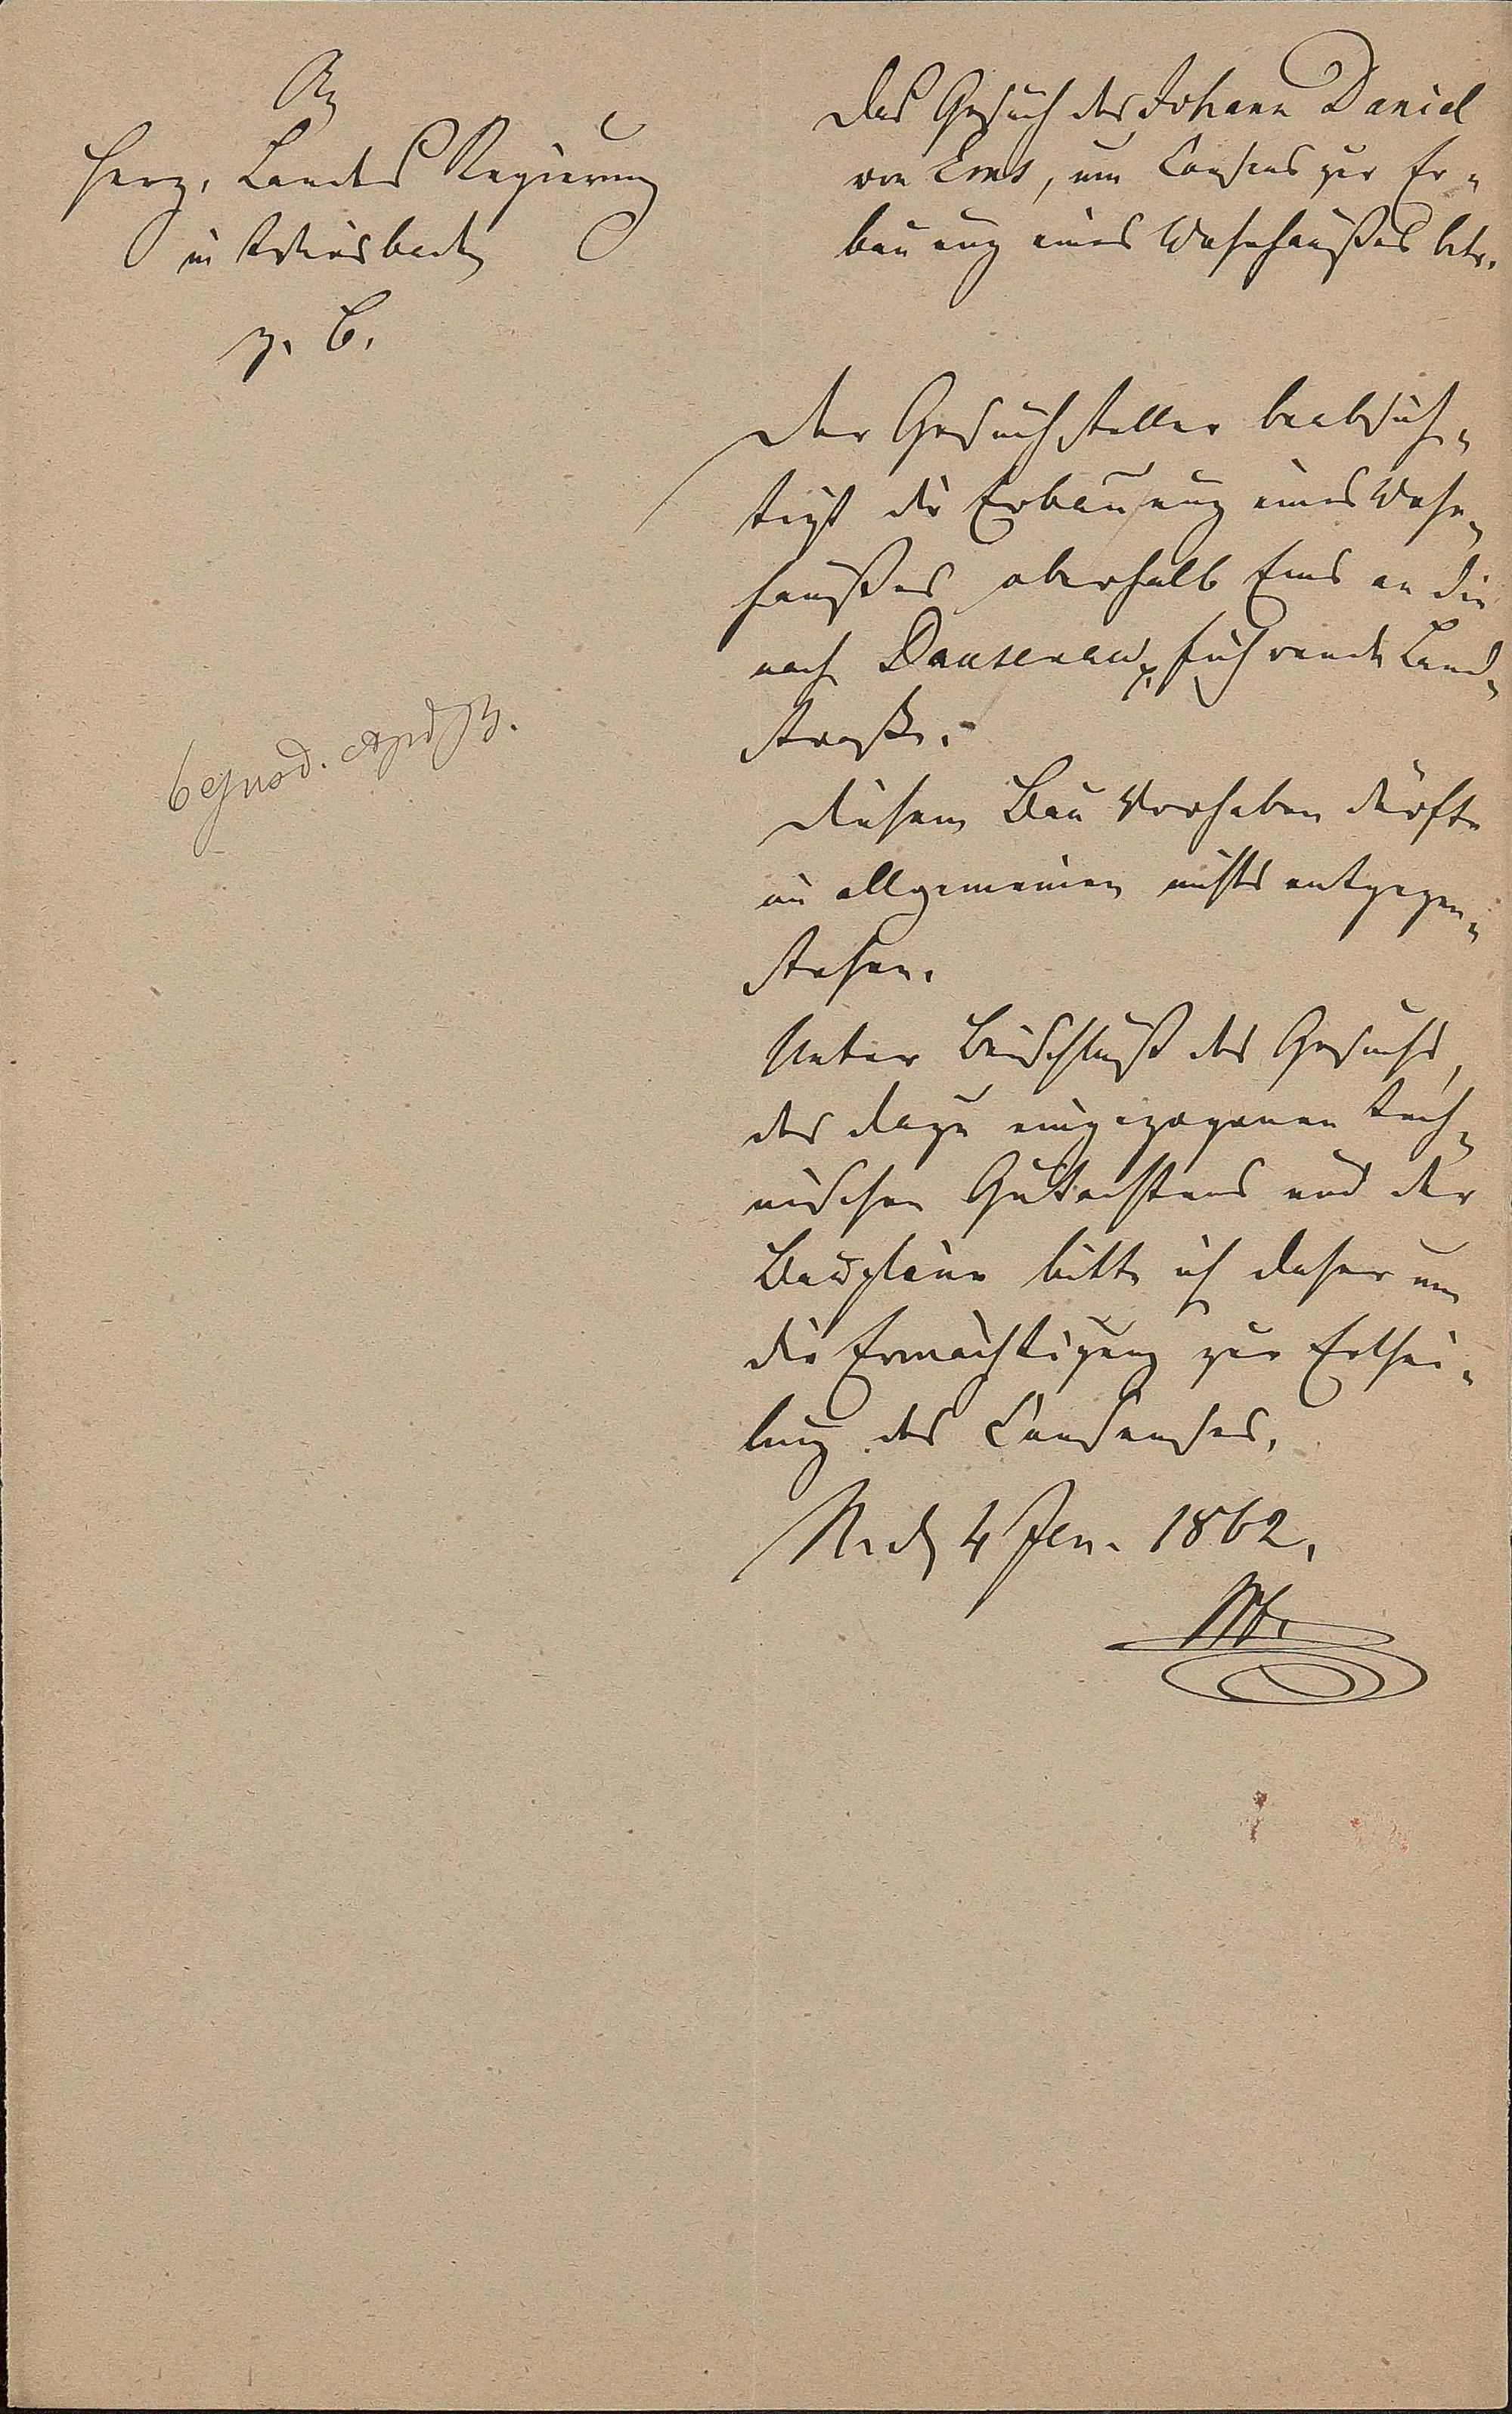 An
Herz. Landes Regierung
in Wiesbaden
z. B.
Das Gesuch des Johann Daniel
von Ems, um Consens zur Er-
bauung eines Wohnhaußes betr.
Der Gesuchsteller beabsich-
tigt die Erbauung eines Wohn-
haußes oberhalb Ems an die
nach Dausenau führende Land-
straße.
Diesem Bau Vorhaben dürfte
im allgemeinen nichts entgegen-
stehen.
Unter Beischluß des Gesuchs,
des dazu eingezogenen tech-
nischen Gutachtens und der
Baupläne bitte ich daher um
die Ermächtigung zur Erthei-
lung des Consenses.
N. d. 4 Jan. 1862.